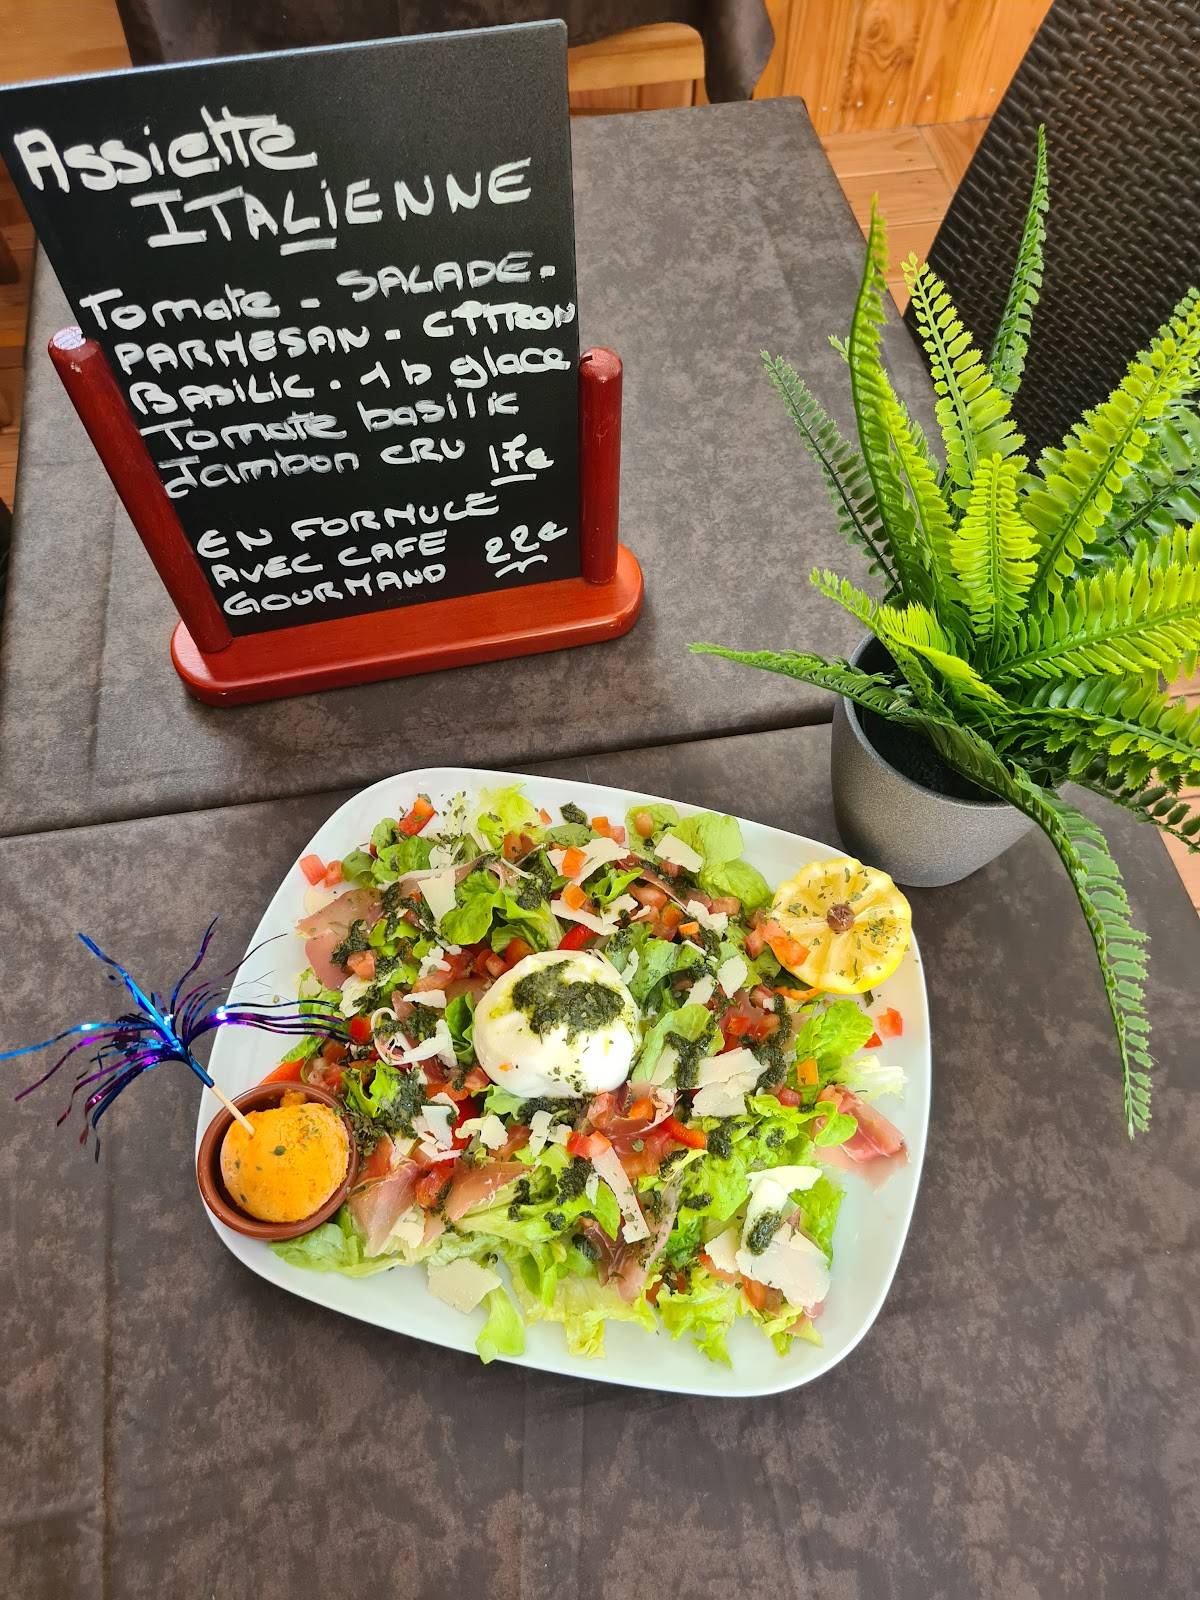 Assiette
ITALiENNE
Tomate - SALADE -
PARMESAN - CITRON
BASILIC - 1 b glace
Tomate basilic
Jambon CRU 17€
EN FORMULE
AVEC CAFE 22€
GOURMAND